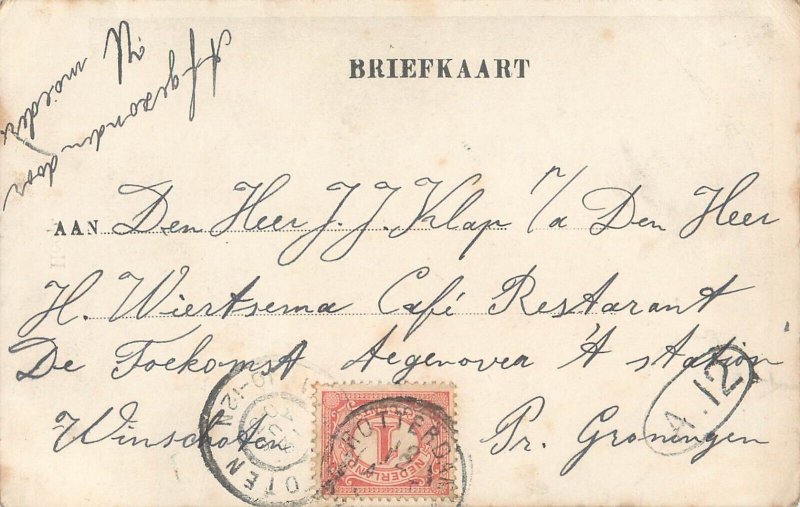 Afgezonden door
U moeder
BRIEFKAART
AAN Den Heer J. J. Klap p/a Den Heer
H. Wiertsema Café Restarant
De Toekomst tegenover 't station
Winschoten Pr. Groningen
10-12N
AUG
OTEN
ROTTERDAM
NEDERLAND
1
A.12